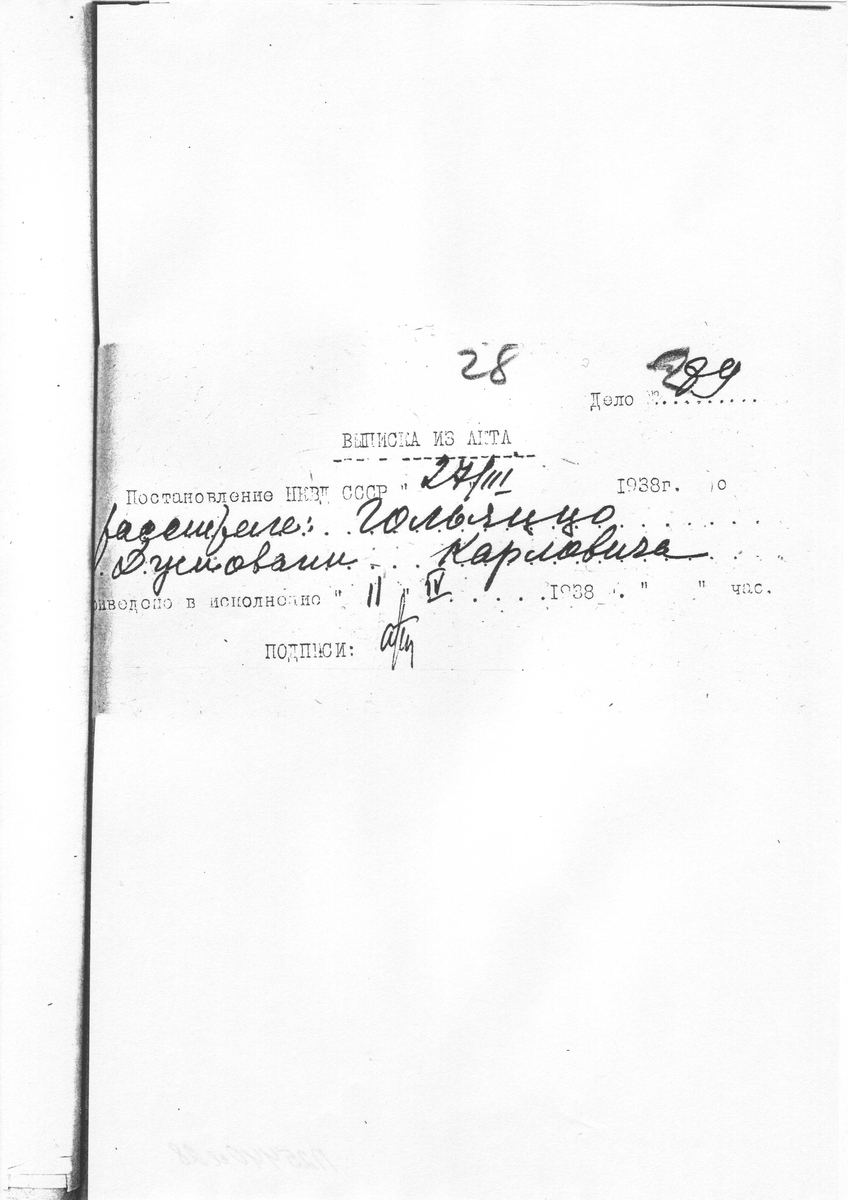 28
Дело №
ВЫПИСКА ИЗ АКТА
Постановление НКВД СССР " 27/III 1938г. о
расстреле:
Карловича
приведено в исполнение " 11 " IV 1938 г. " " час.
ПОДПИСИ: